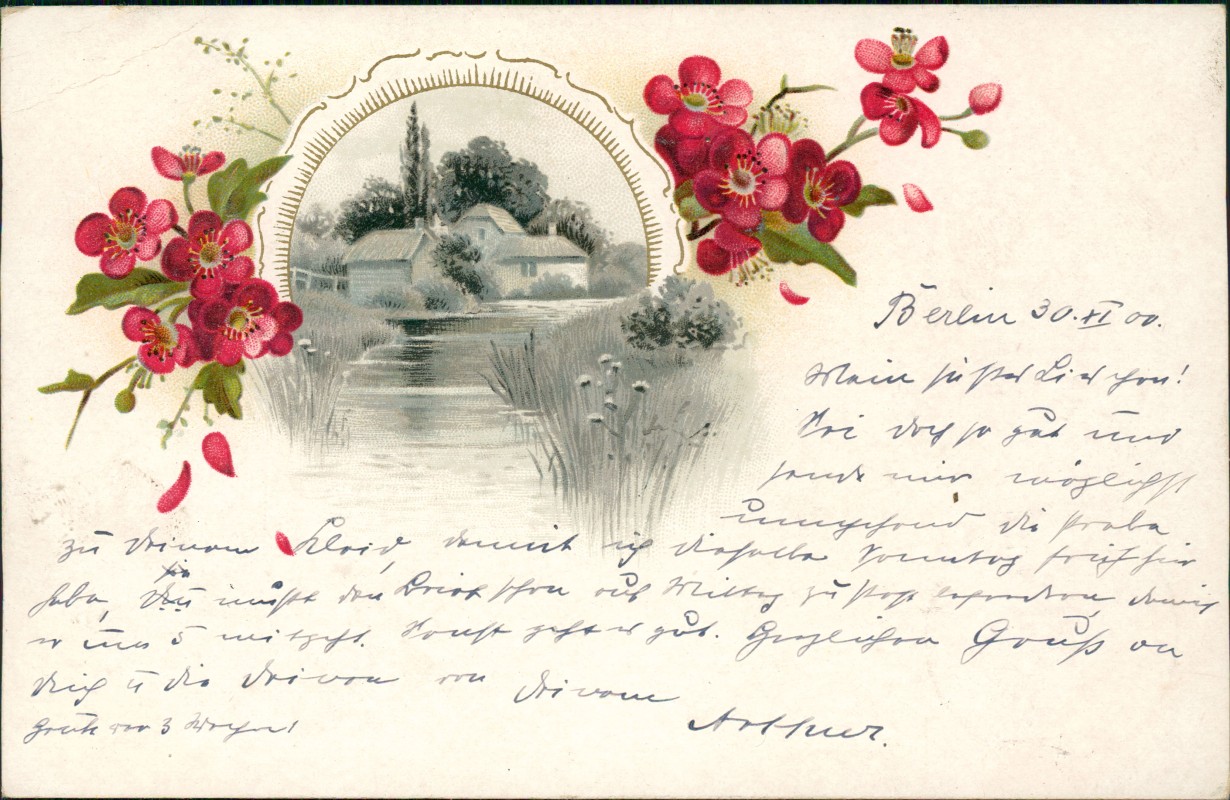 Berlin 30. XI 00.
Mein süßes Lieschen!
Sei doch so gut und
sende mir möglichst
umgehend die Probe
zu deinem Kleid, damit ich dieselbe Sonntag früh hier
habe, Du mußt den Brief schon auf Mittag zur Post befördern damit
er um 5 mitgeht. Sonst geht es gut. Herzlichen Gruß an
dich u die deinen von deinem
Arthur.
Heute vor 3 Wochen!